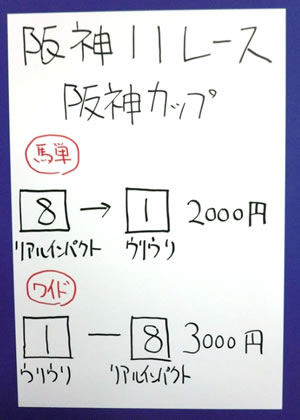 阪神11レース
阪神カップ
馬単
8 → 1 2000円
リアルインパクト ウリウリ
ワイド
1 ー 8 3000円
ウリウリ リアルインパクト